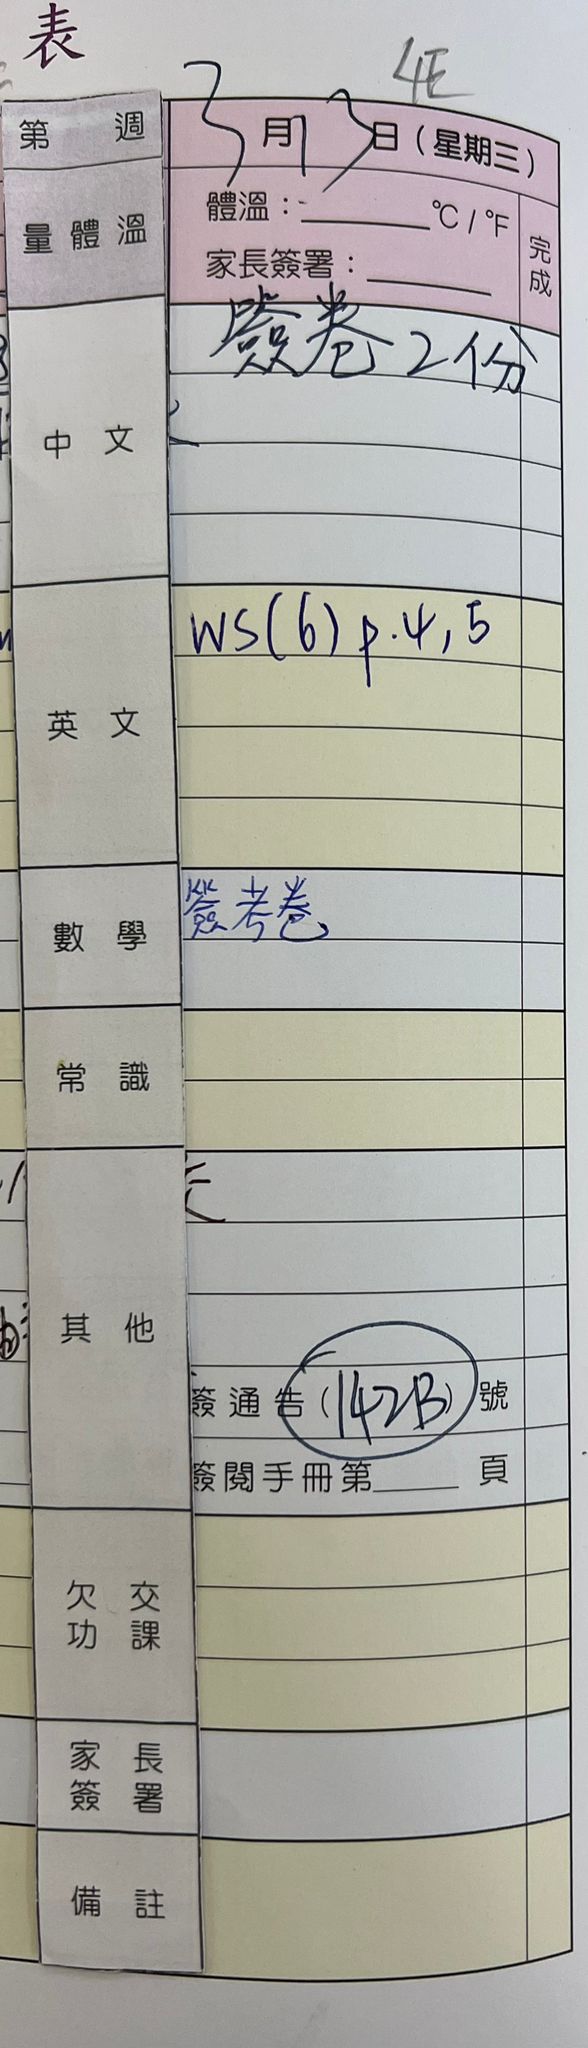 表
4E
第 週 3月13日(星期三)
量體溫 體溫:______℃/℉
家長簽署:______
完成
中文 簽卷2份
英文 WS(6) p.4,5
數學 簽考卷
常識
其他
簽通告(142B)號
簽閱手冊第____頁
欠交功課
家長簽署
備註